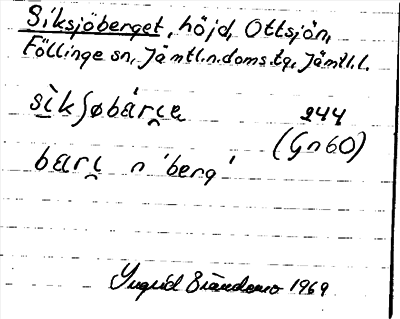 Siksjöberget, höjd, Ottsjön,
Föllinge sn, Jämtl.n.doms.tg, Jämtl.l.
sìkʃøbárɩ̯e̯
244
(Gn60)
barɩ̯ n 'berg'
Ingrid 1969